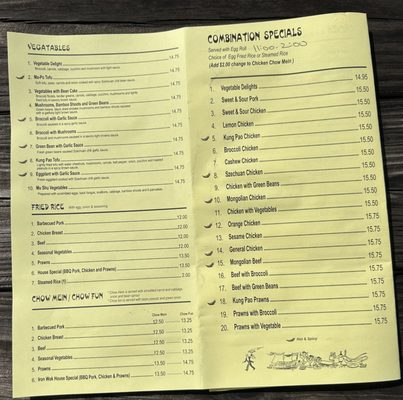 VEGATABLES
1. Vegetable Delight 14.75
Broccoli, carrots, cabbage, zucchini and mushroom with light sauce.
2. Ma-Po Tofu 14.75
3. Vegetables with Bean Cake 14.75
4. Mushrooms, Bamboo Shoots and Green Beans 14.75
5. Broccoli with Garlic Sauce 14.75
6. Broccoli with Mushrooms 14.75
7. Green Bean with Garlic Sauce 14.75
8. Kung Pao Tofu 14.75
9. Eggplant with Garlic Sauce 14.75
10. Mu Shu Vegetables 14.75
FRIED RICE With egg, onion & seasoning
1. Barbecued Pork 12.00
2. Chicken Breast 12.00
3. Beef 12.00
4. Seasonal Vegetables 12.00
5. Prawns 13.50
6. House Special (BBQ Pork, Chicken and Prawns) 13.50
7. Steamed Rice (1) 2.00
CHOW MEIN / CHOW FUN
Chow Mein Chow Fun
1. Barbecued Pork 12.50 13.25
2. Chicken Breast 12.50 13.25
3. Beef 12.50 13.25
4. Seasonal Vegetables 12.50 13.25
5. Prawns 13.50 14.75
6. Iron Wok House Special (BBQ Pork, Chicken & Prawns) 13.50 14.75
COMBINATION SPECIALS
Served with Egg Roll 11:00-2:30
Choice of Egg Fried Rice or Steamed Rice
(Add $2.00 change to Chicken Chow Mein)
1. Vegetable Delights 14.95
2. Sweet & Sour Pork 15.50
3. Sweet & Sour Chicken 15.50
4. Lemon Chicken 15.50
5. Kung Pao Chicken 15.50
6. Broccoli Chicken 15.50
7. Cashew Chicken 15.50
8. Szechuan Chicken 15.50
9. Chicken with Green Beans 15.50
10. Mongolian Chicken 15.50
11. Chicken with Vegetables 15.50
12. Orange Chicken 15.75
13. Sesame Chicken 15.75
14. General Chicken 15.75
15. Mongolian Beef 15.75
16. Beef with Broccoli 15.75
17. Beef with Green Beans 15.75
18. Kung Pao Prawns 15.75
19. Prawns with Broccoli 15.75
20. Prawns with Vegetable 15.75
Hot & Spicy